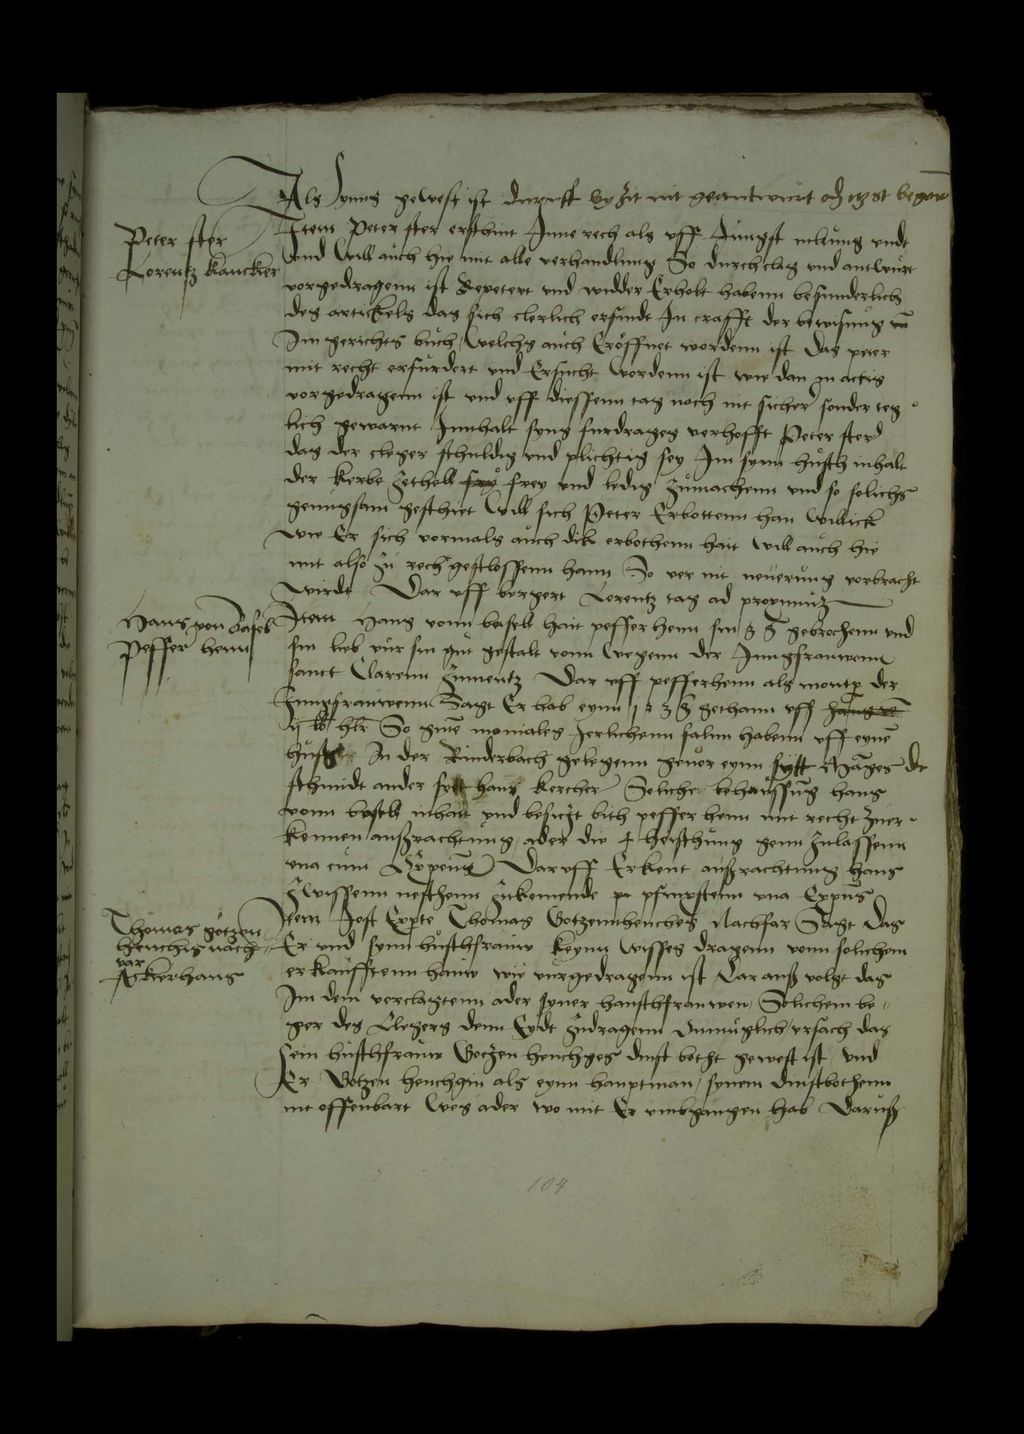 Als ynns gewest ist daruff by zit nit geantwurt
Peter ster
Lorentz kancker
Item Peter ster erschint Inne rech als uff Jungst vnd
vnd will auch hie mit alle verhandlung So durch clag vnd antwurt
vorgedragenn ist Repetert vnd widder Erholt habenn besunderlich
des artickels das sich clerlich ersindt In crafft der bewisung
Im gerichts buch welchs auch Eröffnet wordenn ist Das peter
mit recht erfurdert vnd Ersucht wordenn ist wie dan in actis
vorgedragenn ist vnd uff diessenn tag noch nit sicher sonder teg
lich gewarnt Innhalt syns furdrages verhofft Peter ster
das der cleger schuldig vnd plichtig sey Im synn husch inhalt
der kerbe zethell frey vnd ledig zumachenn vnd so solichs
genugsam geschiet Will sich Peter Erbottenn han willick
wie Er sich vormals auch dik erbothenn hait will auch hie
mit also zu rech gestlossenn hann So ver nit neuerung vorbracht
wirdt Dar uff bergert Lorentz tag ad proximum
Hans von Basel
Peffer henn
Item Hans vonn baselt hait pefferhenn sin gebrochenn vnd
sin lieb vur sin gut gestalt vonn wegenn der Jungfrauwenn
sanct Clarenn zumentz Dar uff pefferhenn als montper der
Jungfrauwenn Sagt Er hab eynn gethann uff
hlr So gute monials Jerlichenn fallnn habenn uff eyne
huse In der Rinderbach gelegenn geuor eynn sytt Manges der
schmidt ander sytt hans kercher Soliche behaussung hans
vonn baselt inhait vnd besiczt bith peffer henn mit recht zuer
kennen außrachtung ader die heischung genn zulassenn
vna cum Expens Daruff Erkent außrachtung hans
zwissenn nesthenn zukemende pfingstenn vna Expens
Thomas gotzen
henchis nach
var
Ackerhans
Item Jost Experte Thomas Gotzennhenches Nachfar Sagt das
Er vnd synn huschfrauw keynn wisses dragenn vonn solichem
erkaufftenn hauw wie vurgedragenn ist Dar auß volgt das
Im dem verclagtenn ader syner hauschfrauwen Solichem be
ger des Clegers denn Eydt zudragenn Vnmuglich vrsach das
sein huschfrauw Gotzen henchges dinst botht gewest ist vnd
Er Gotzen henchgin als eynn hauptman synem dinstbothenn
nit offenbart wes ader wo mit Er vmbgangen hab Daruß
104